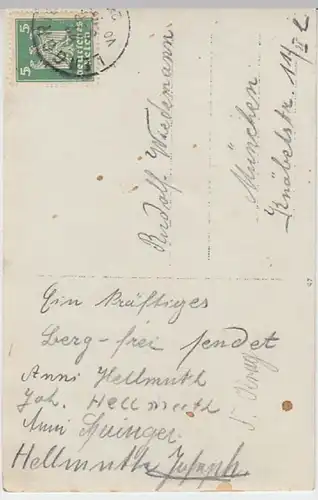 5 5
Deutsches
Reich
Rudolf Wiedemann
München
Knöbelstr. 14/II l
Ein kräftiges
Berg-frei sendet
Anni Hellmuth
Joh. Hellmuth
Anni
Hellmuth Joseph